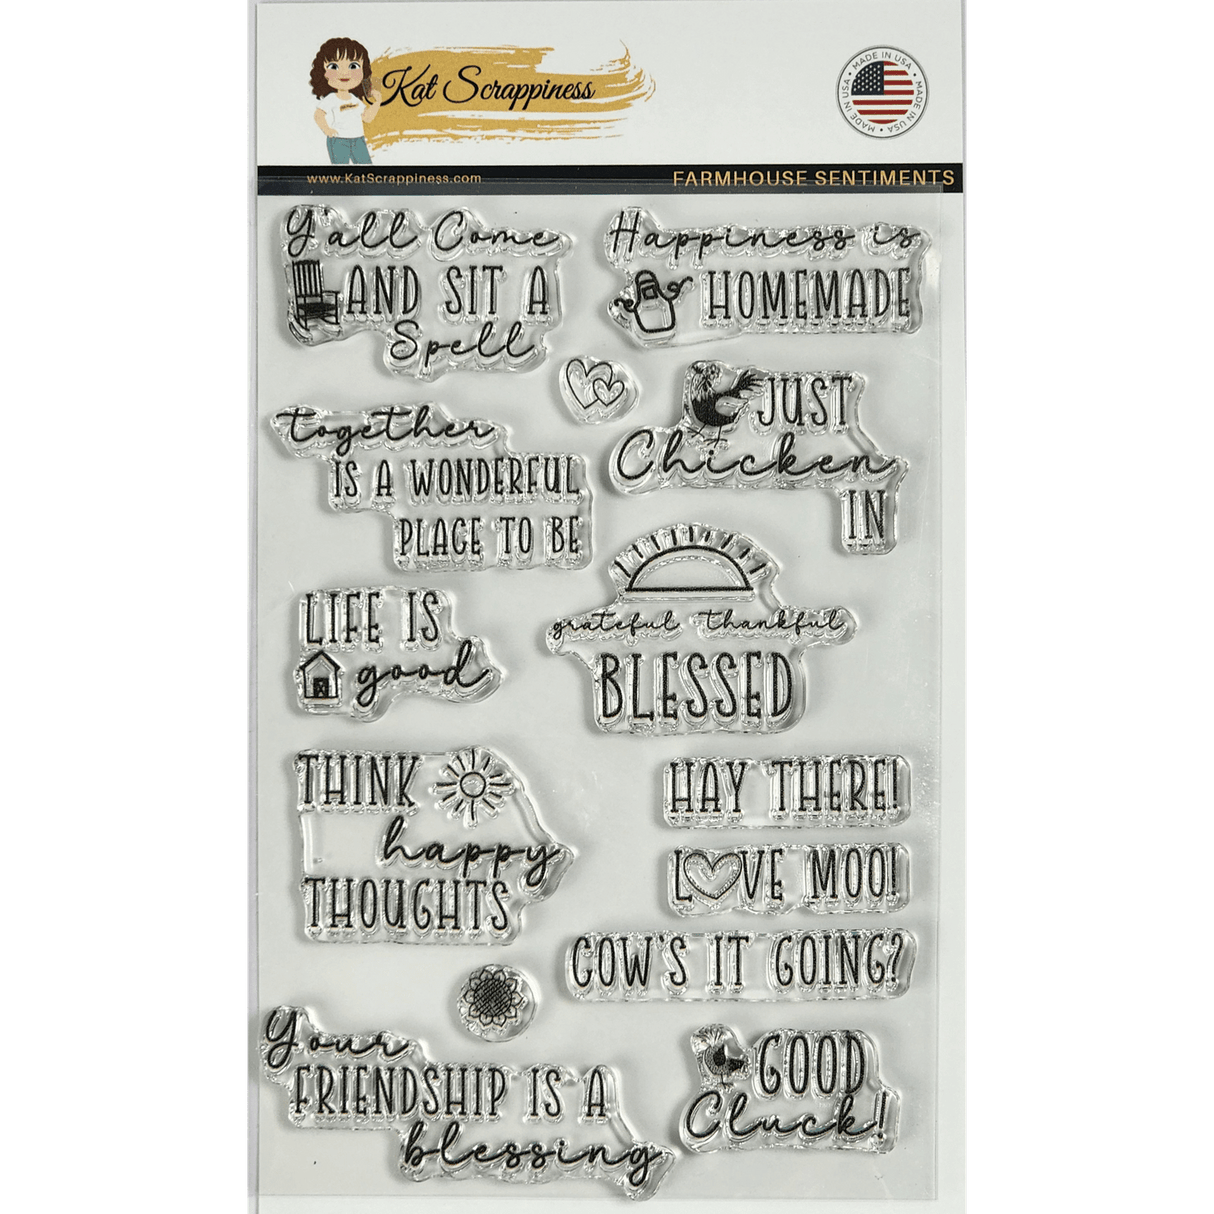 Kat Scrappiness
MADE IN USA • MADE IN USA • MADE IN USA •
www.KatScrappiness.com
FARMHOUSE SENTIMENTS
Y'all Come
AND SIT A
Spell
Happiness is
HOMEMADE
together
IS A WONDERFUL
PLACE TO BE
JUST
Chicken
IN
LIFE IS
good
grateful thankful
BLESSED
THINK
happy
THOUGHTS
HAY THERE!
LOVE MOO!
COW'S IT GOING?
Your
FRIENDSHIP IS A
blessing
GOOD
Cluck!